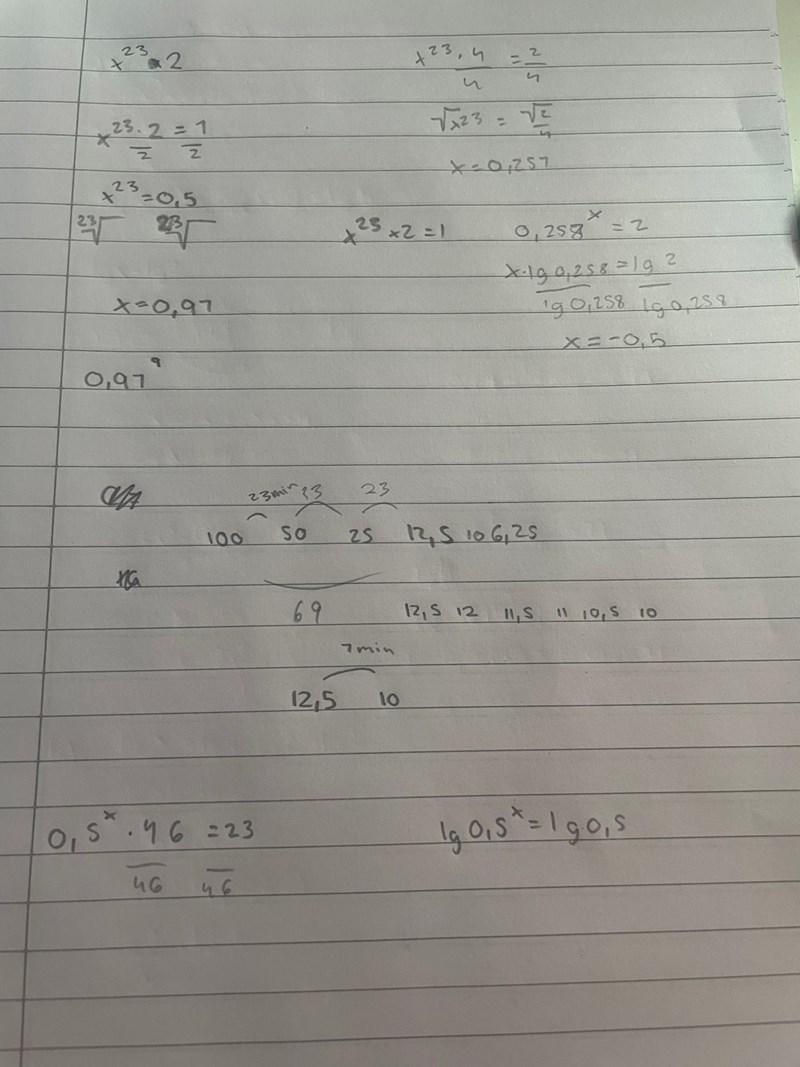 x²³ · 2
x²³ · 2 = 1
2 2
x²³ = 0,5
²³√ ²³√
x = 0,97
0,97⁹
x²³ · 4 = 2
4 4
√x23 = √2
4
x = 0,257
x²³ × 2 = 1
0,258ˣ = 2
x · lg 0,258 = lg 2
lg 0,258 lg 0,258
x = -0,5
23min 23 23
100 50 25 12,5 10 6,25
69
12,5 12 11,5 11 10,5 10
7min
12,5 10
0,5ˣ · 46 = 23
46 46
lg 0,5ˣ = lg 0,5